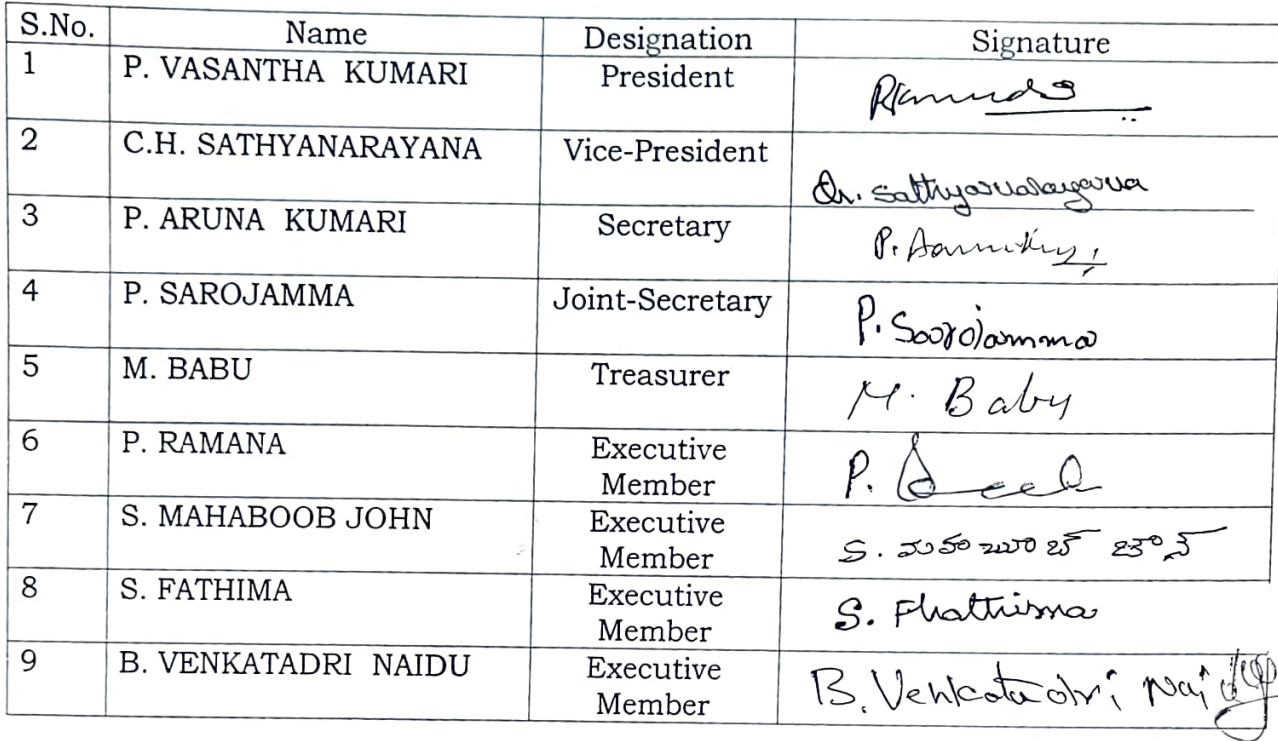 S.No. Name Designation Signature
1 P. VASANTHA KUMARI President
2 C.H. SATHYANARAYANA Vice-President Ch. Sathyanarayana
3 P. ARUNA KUMARI Secretary P.
4 P. SAROJAMMA Joint-Secretary P. Soorojamma
5 M. BABU Treasurer M. Babu
6 P. RAMANA Executive P.
Member
7 S. MAHABOOB JOHN Executive S. మహబూబ్ జాన్
Member
8 S. FATHIMA Executive S. Fhathima
Member
9 B. VENKATADRI NAIDU Executive B. Venkatadri Naidu
Member